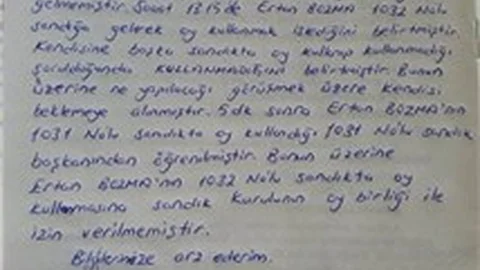 gelmemiştir. Saat 13.15'de Ertan BOZMA 1032 Nolu
sandığa gelerek oy kullanmak istediğini belirtmiştir.
Kendisine başka sandıkta oy kullanıp kullanmadığı
sorulduğunda KULLANMADIĞINI belirtmiştir. Bunun
üzerine ne yapılacağı görüşmek üzere kendisi
beklemeye alınmıştır. 5 dk sonra Ertan BOZMA'nın
1031 Nolu sandıkta oy kullandığı 1031 Nolu sandık
başkanından öğrenilmiştir. Bunun üzerine
Ertan BOZMA'nın 1032 Nolu sandıkta oy
kullanmasına sandık kurulunun oy birliği ile
izin verilmemiştir.
Bilgilerinize arz ederim.